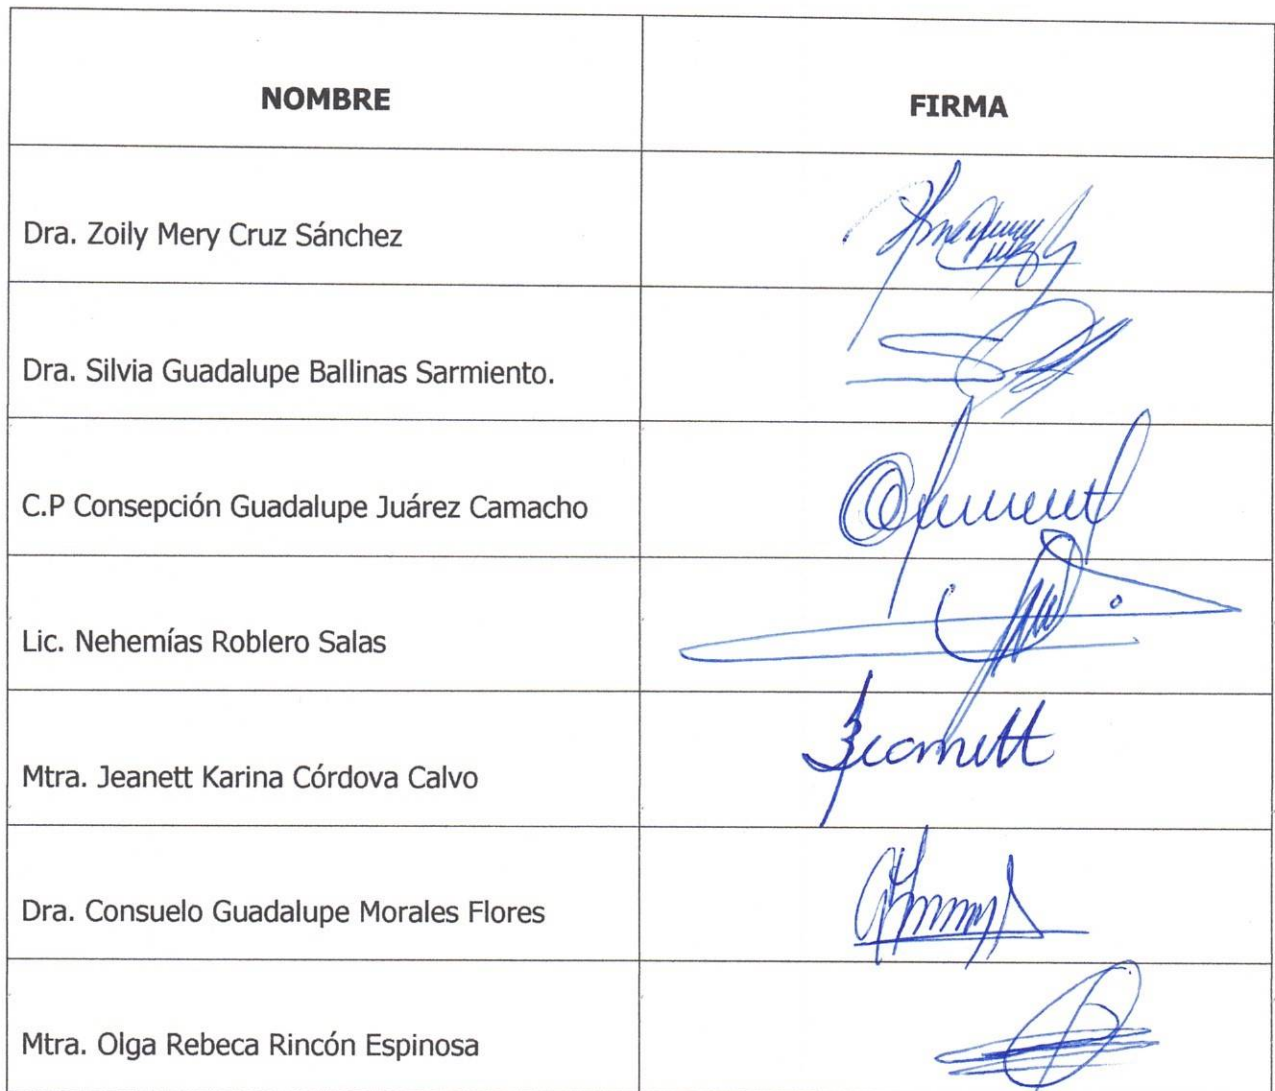 NOMBRE FIRMA
Dra. Zoily Mery Cruz Sánchez
Dra. Silvia Guadalupe Ballinas Sarmiento.
C.P Consepción Guadalupe Juárez Camacho
Lic. Nehemías Roblero Salas
Mtra. Jeanett Karina Córdova Calvo Jeanett
Dra. Consuelo Guadalupe Morales Flores
Mtra. Olga Rebeca Rincón Espinosa